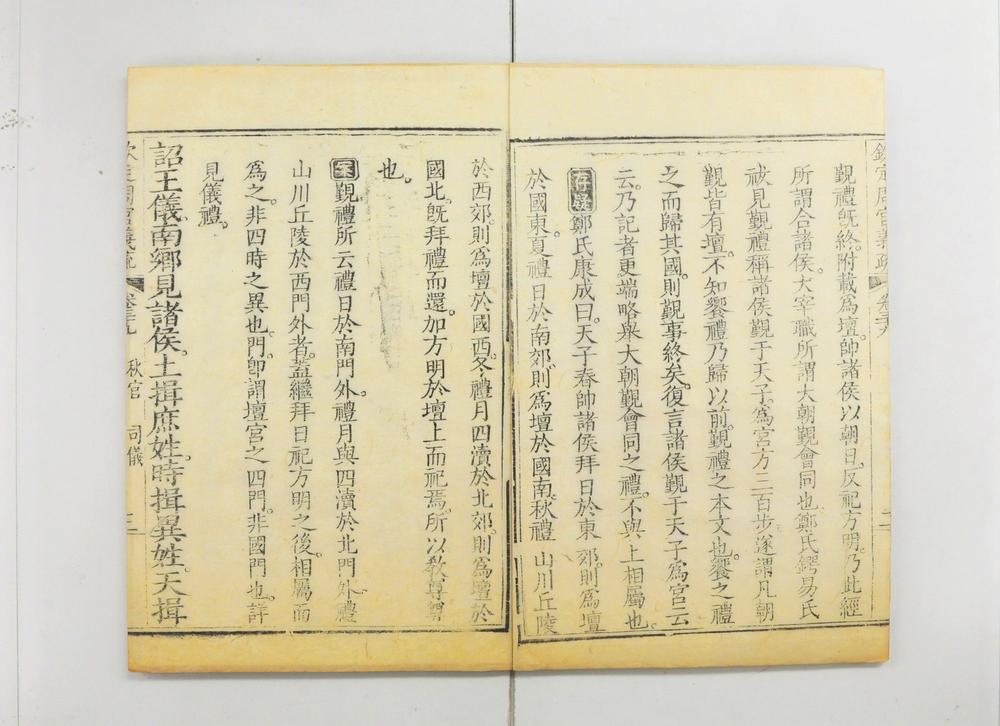 欽定周官義疏 卷三十九 二
覲禮旣終。附載爲壇。帥諸侯以朝日。反祀方明。乃此經
所謂合諸侯。大宰職所謂大朝覲會同也。鄭氏鍔易氏
祓見覲禮稱諸侯覲于天子。爲宮方三百步。遂謂凡朝
覲皆有壇。不知饗禮乃歸以前。覲禮之本文也。饗之禮
之而歸其國。則覲事終矣。復言諸侯覲于天子爲宮云
云。乃記者更端略舉大朝覲會同之禮。不與上相屬也。
存疑 鄭氏康成曰。天子春帥諸侯拜日於東郊。則爲壇
於國東。夏禮日於南郊。則爲壇於國南。秋禮山川丘陵
於西郊。則爲壇於國西。冬禮月四瀆於北郊。則爲壇於
國北。旣拜禮而還。加方明於壇上而祀焉。所以教尊尊
也。
案 覲禮所云禮日於南門外。禮月與四瀆於北門外。禮
山川丘陵於西門外者。蓋繼拜日祀方明之後。相屬而
爲之。非四時之異也。門。卽謂壇宮之四門。非國門也。詳
見儀禮。
詔王儀。南鄉見諸侯。土揖庶姓。時揖異姓。天揖
欽定周官義疏 卷三十九 秋官 司儀 三